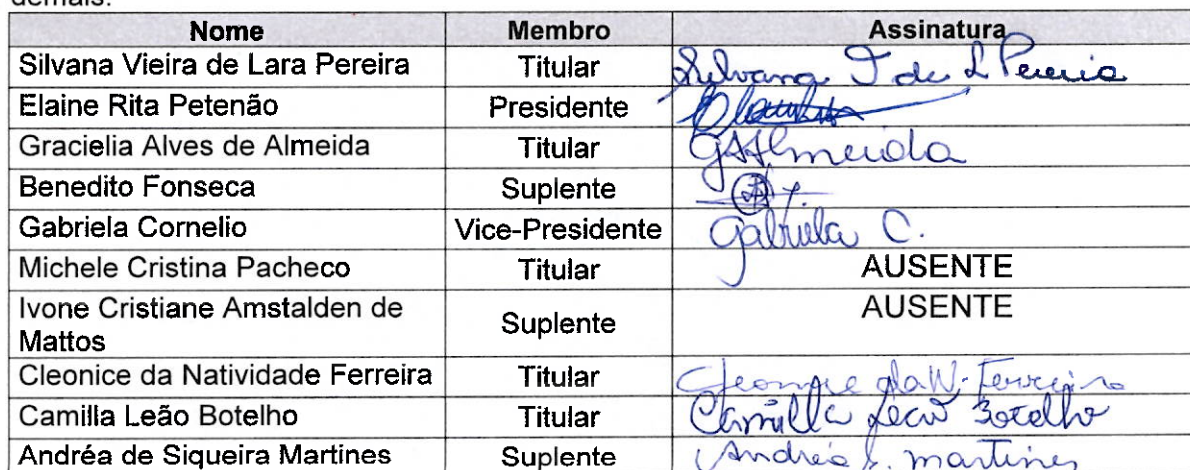 demais.
Nome Membro Assinatura
Silvana Vieira de Lara Pereira Titular Silvana de L Pereira
Elaine Rita Petenão Presidente
Gracielia Alves de Almeida Titular GAAlmeida
Benedito Fonseca Suplente
Gabriela Cornelio Vice-Presidente Gabriela C.
Michele Cristina Pacheco Titular AUSENTE
Ivone Cristiane Amstalden de
Mattos Suplente AUSENTE
Cleonice da Natividade Ferreira Titular Cleonice da N. Ferreira
Camilla Leão Botelho Titular Camilla Leão Botelho
Andréa de Siqueira Martines Suplente Andréa S. Martines